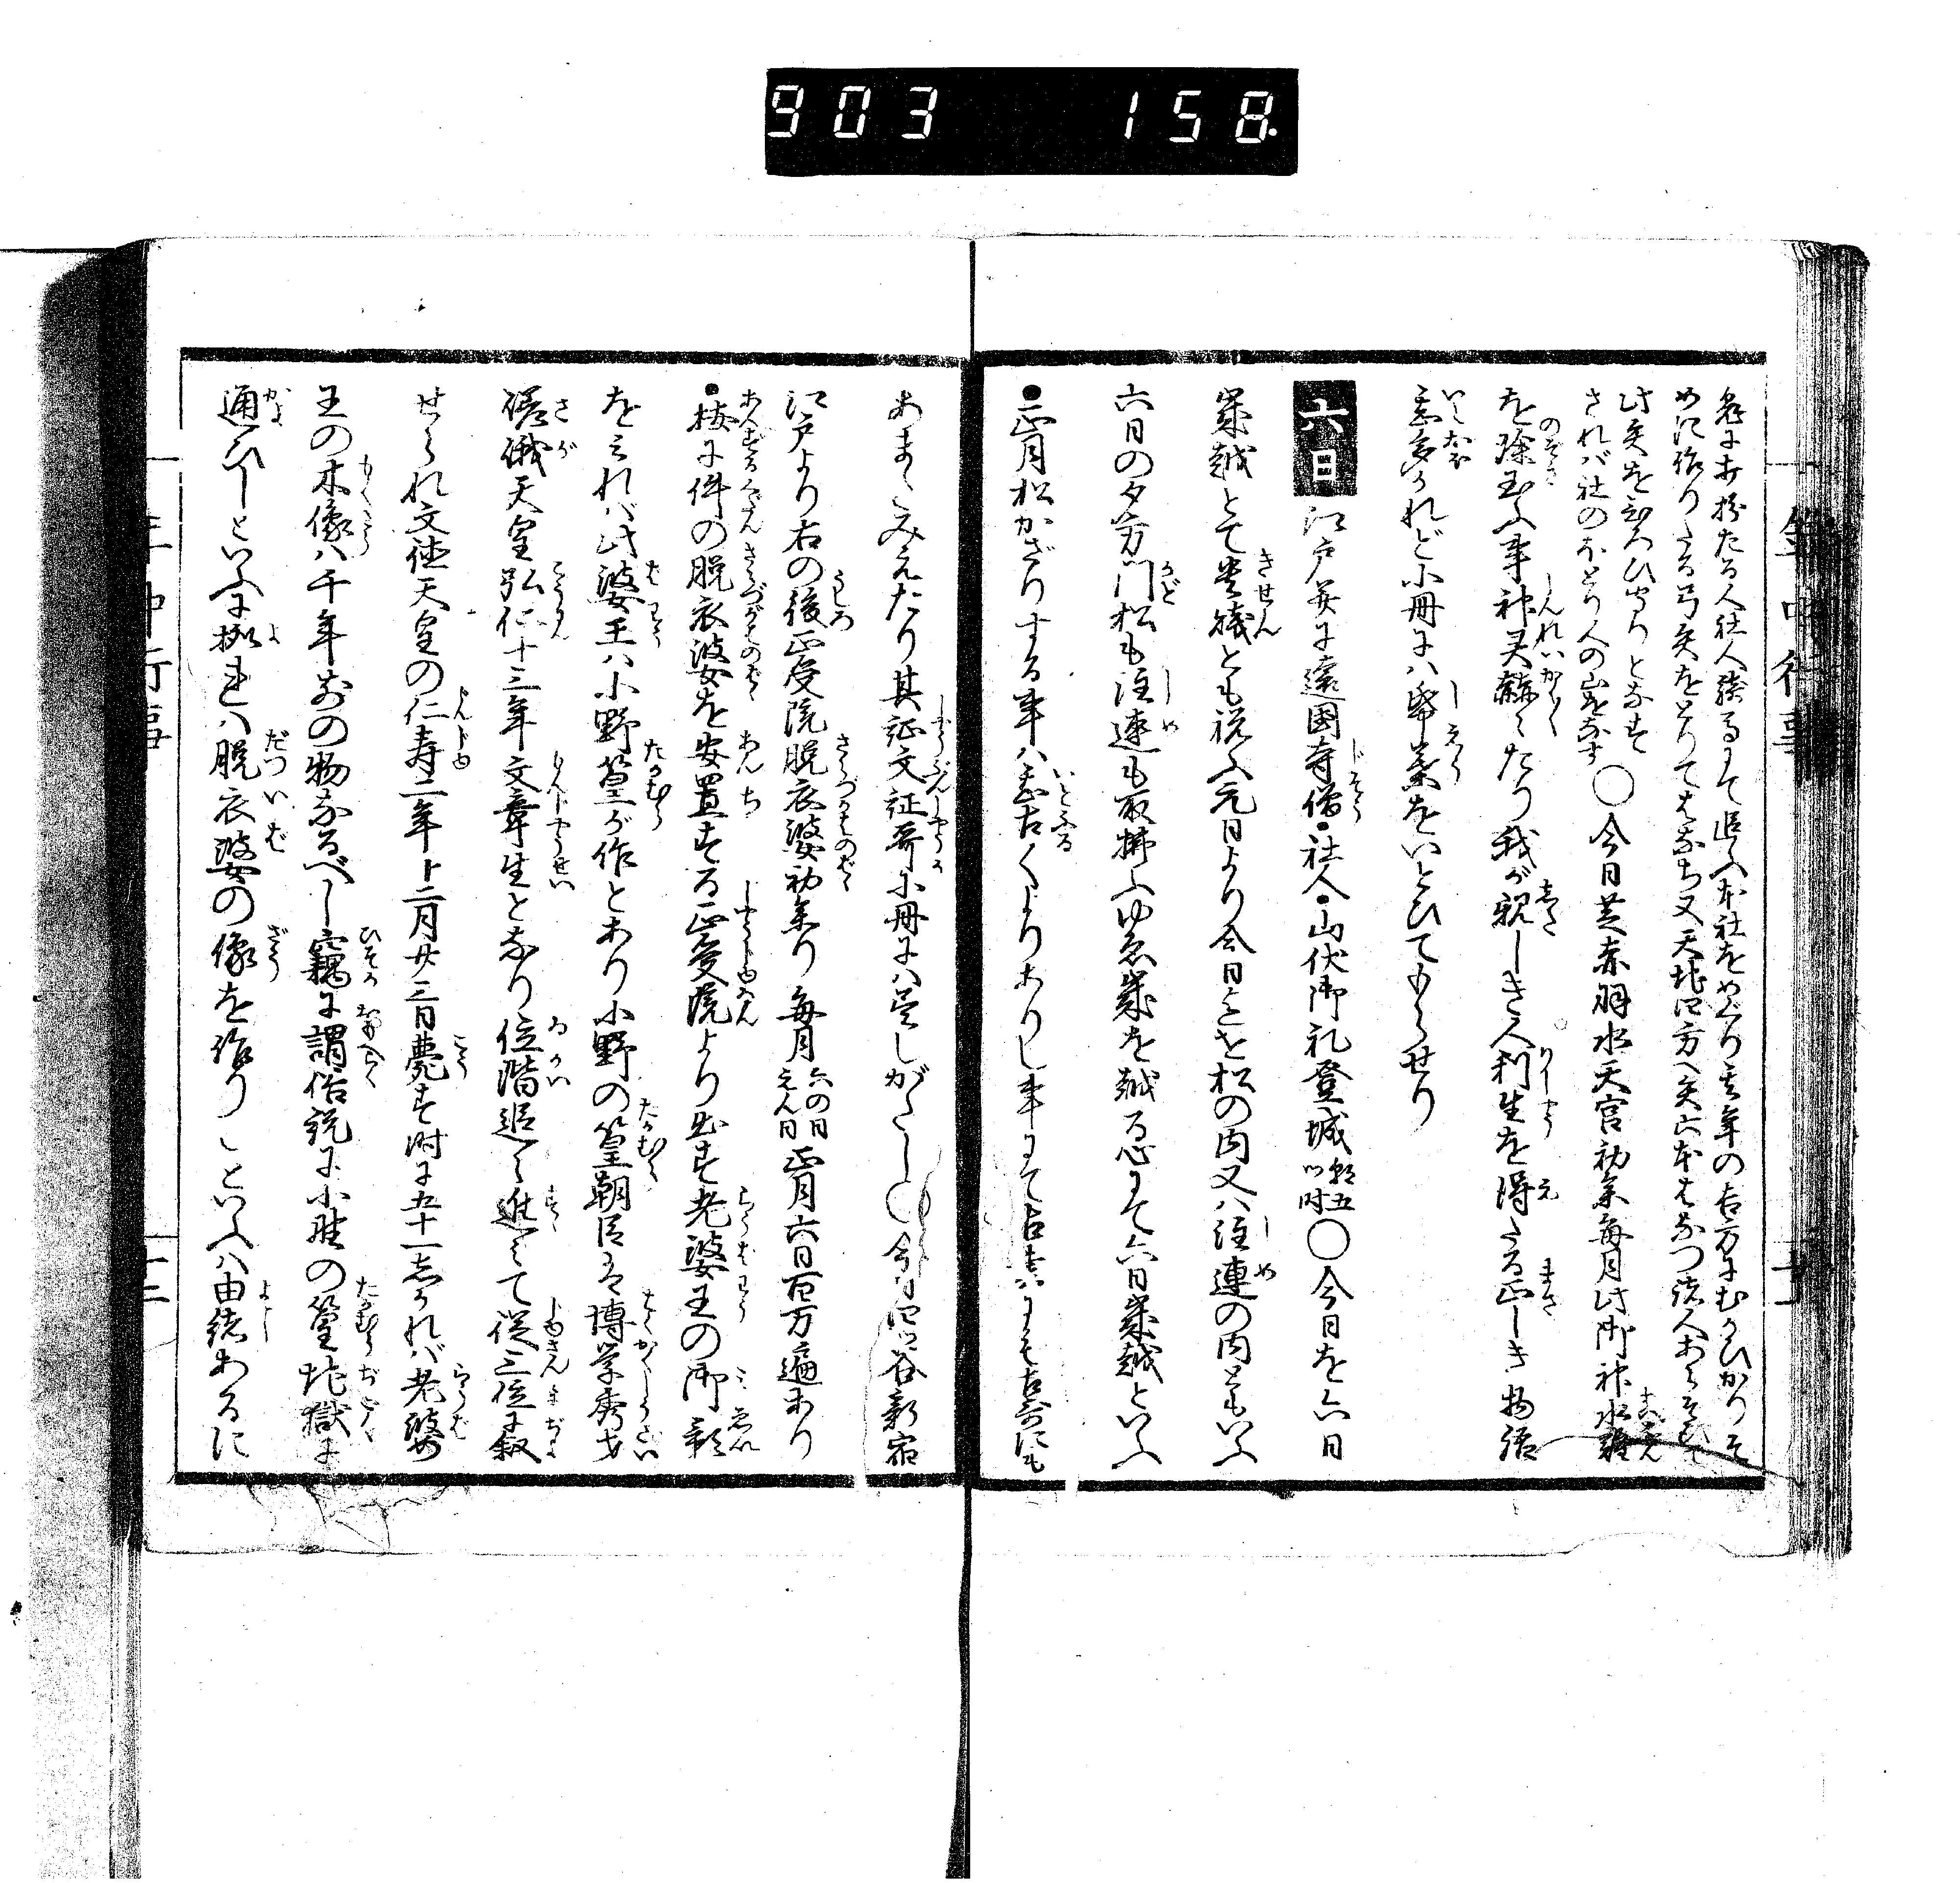 903 158.
めに作りたる弓矢をとりてはなち又天地四方へ矢六本はなつ諸人あらそひて
此矢をひろひ守りとなす
されバ社のほとり人の山をなす〇今日芝赤羽水天宮初参毎月此御神水難
を除玉ふ事神灵赫々たり我が親しき人利生を得たる正しき物語
いと多かれど小冊にハ紙業をいとひてもらせり
六日 江戸并に遠國寺僧・社人・山伏御礼登城朝五ツ時〇今日を六日
歳越とて貴賤とも祝ふ元日より今日までを松の内又ハ注連の内ともいふ
六日の夕方門松も注連も取拂ふゆゑ歳を越る心にて六日歳越といふ
●正月松かざりする事ハいと古くよりありし事にて古書にも古哥にも
あまたみえたり其証文証哥小冊にハ尽しがたし〇今日四ツ谷新宿
江戸より右の後正受院脱衣婆初参り毎月六の日ゑん日正月六日百万遍あり
●按に件の脱衣婆を安置する正受院より出す老婆王の御影
をみれバ此婆王ハ小野篁が作とあり小野の篁朝臣は博学秀才
嵯峨天皇弘仁十三年文章生となり位階追々進みて従三位に叙
せられ文徳天皇の仁寿二年十二月廿二日薨す時に五十一志かれバ老婆
王の木像ハ千年前の物なるべし竊に謂俗説に小野の篁地獄に
通ひしといふに拠れハ脱衣婆の像を作りしといふハ由緒あるに